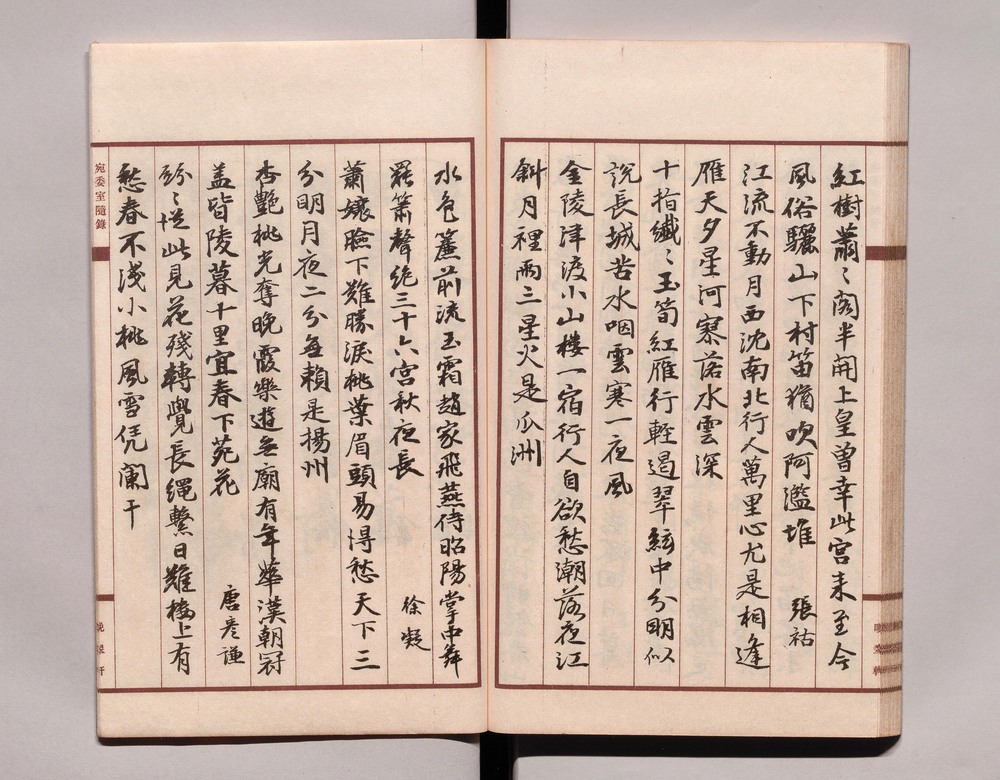 紅樹蕭〻閣半開上皇曾幸此宮来至今
風俗驪山下村笛猶吹阿濫堆 張祜
江流不動月西沈南北行人萬里心尤是相逢
雁天夕星河寥落水雲深
十指纖〻玉筍紅雁行輕遏翠絃中分明似
説長城苦水咽雲寒一夜風
金陵津渡小山樓一宿行人自欲愁潮落夜江
斜月裡兩三星火是瓜洲
水色簾前流玉霜趙家飛燕侍昭陽掌中舞
罷簫聲絶三十六宮秋夜長 徐凝
蕭孃臉下難勝淚桃葉眉頭易得愁天下三
分明月夜二分無頼是揚州
杏艷桃光奪晚霞樂遊無廟有年華漢朝冠
盖皆陵暮十里宜春下苑花 唐彦謙
紛〻從此見花殘轉覺長繩繫日難樓上有
愁春不淺小桃風雪凭闌干
宛委室隨錄